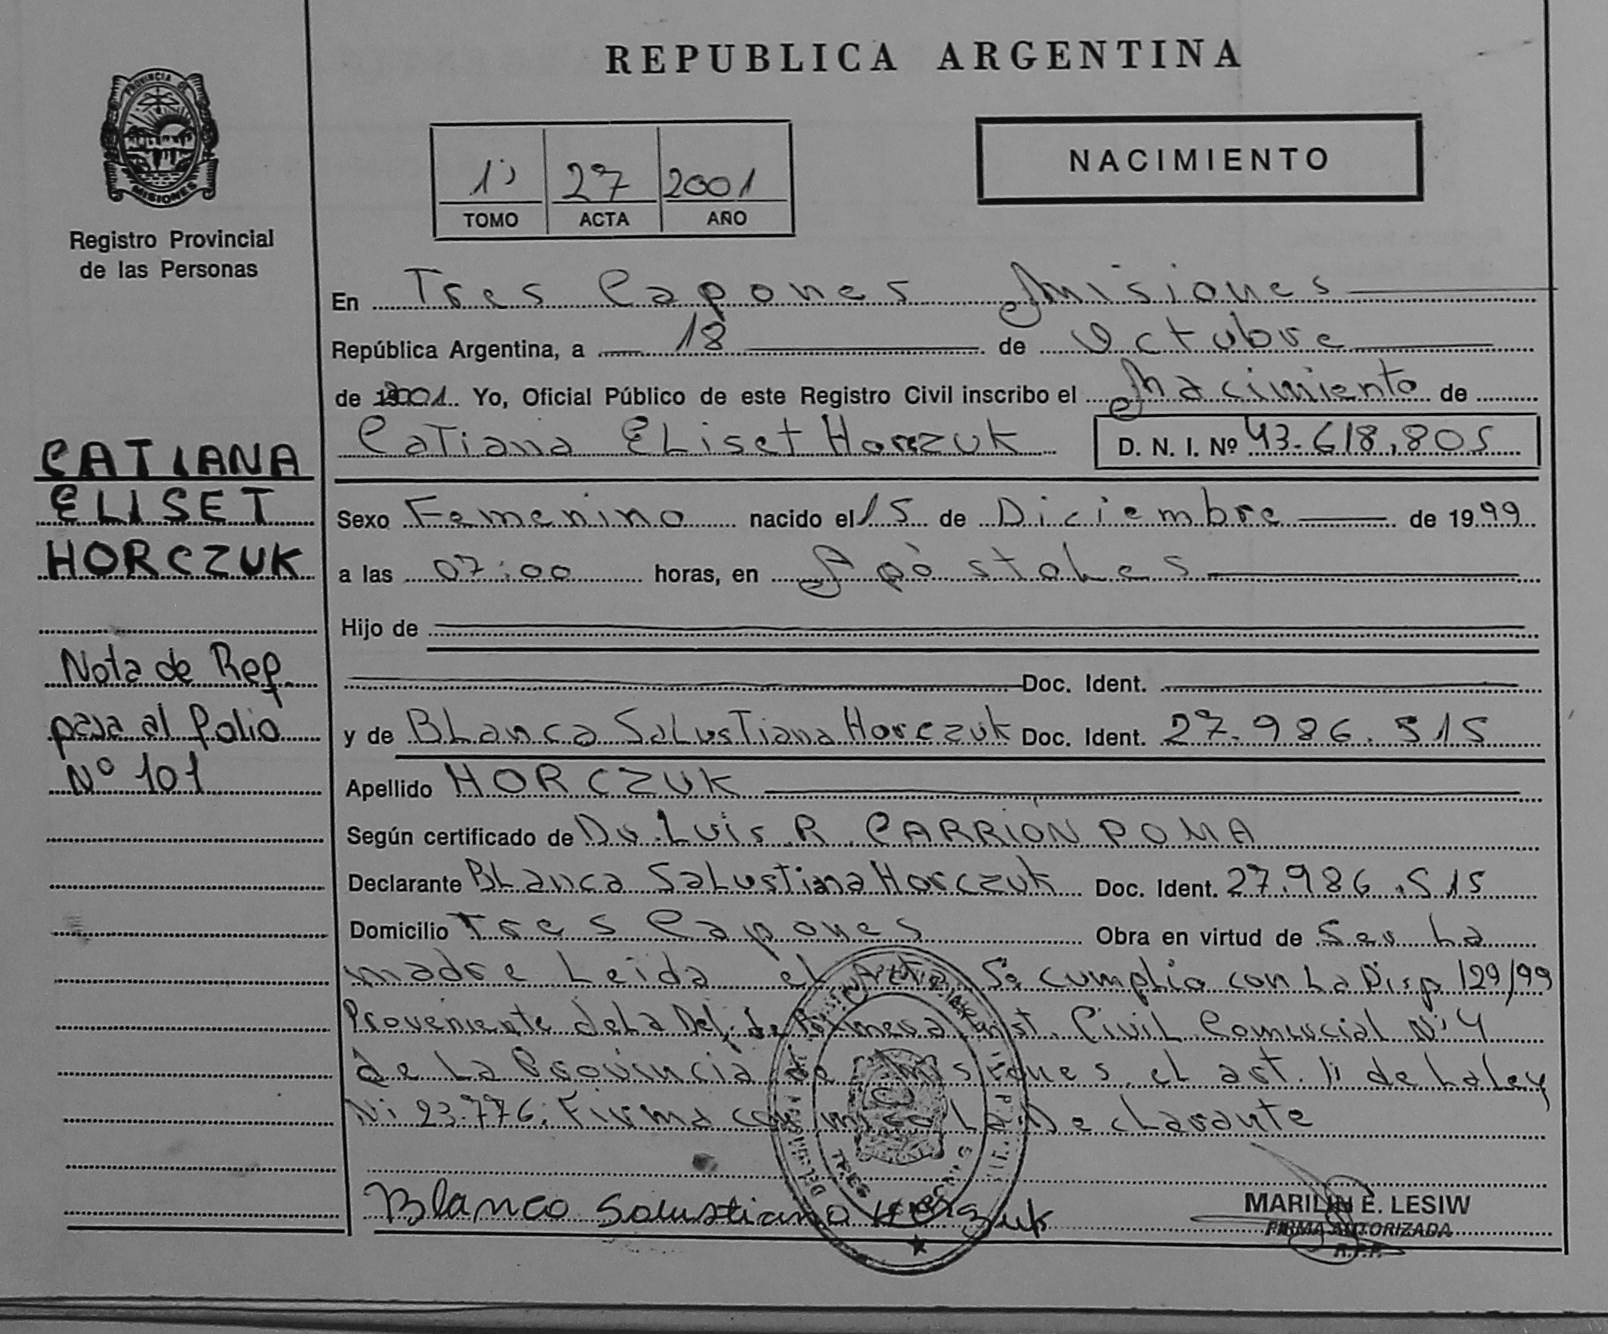 REPUBLICA ARGENTINA
PROVINCIA DE
MISIONES
Registro Provincial
de las Personas
1º 27 2001
TOMO ACTA AÑO
NACIMIENTO
En Tres Capones Misiones
República Argentina, a 18 de Octubre
de 2001. Yo, Oficial Público de este Registro Civil inscribo el Nacimiento de
Catiana Eliset Horczuk D. N. I. Nº 43.618.805
CATIANA
ELISET
HORCZUK
Sexo Femenino nacido el 15 de Diciembre de 1999
a las 07:00 horas, en Apóstoles
Hijo de
Doc. Ident.
Nota de Rep.
pasa al Folio
Nº 101
y de Blanca Salustiana Horczuk Doc. Ident. 27.986.515
Apellido HORCZUK
Según certificado de Dr. Luis R. CARRION POMA
Declarante Blanca Salustiana Horczuk Doc. Ident. 27.986.515
Domicilio Tres Capones Obra en virtud de Ser La
madre Leida el Acta Se cumplio con La Disp 129/99
Proveniente de La Def. de Primera Inst. Civil Comercial Nº 4
de La Provincia de Misiones, el art. 1º de La Ley
Nº 23.776. Firma conmigo La Declarante
Blanca Salustiana Horczuk
MARILIN E. LESIW
FIRMA AUTORIZADA
R.P.P.